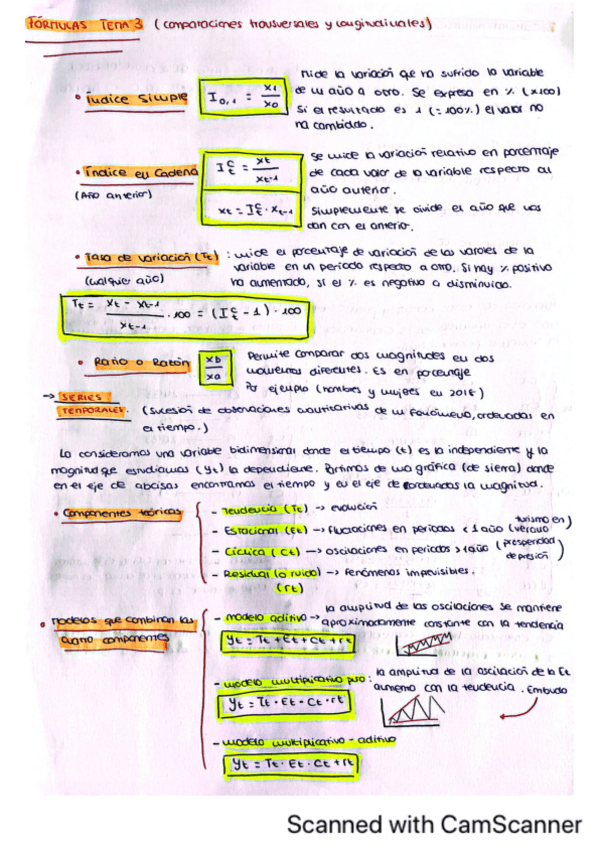 FÓRMULAS TEMA 3 (comparaciones trasversales y longitudinales)
• Índice Simple
I0,1 = x1 / x0
Mide la variación que ha sufrido la variable
de un año a otro. Se expresa en % (x100)
Si el resultado es 1 (= 100%) el valor no
ha cambiado.
• Índice en Cadena
(Año anterior)
I^c_t = xt / xt-1
xt = I^c_t · xt-1
Se mide la variación relativo en porcentaje
de cada valor de la variable respecto al
año anterior.
Simplemente se divide el año que nos
dan con el anterior.
• Tasa de variación (Tt) : mide el porcentaje de variación de los valores de la
variable en un periodo respecto a otro. Si hay % positivo
(cualquier año) ha aumentado, si el % es negativo a disminuido.
Tt = xt - xt-1 / xt-1 · 100 = (I^c_t - 1) · 100
• Ratio o Razón
xb / xa
Permite comparar dos magnitudes en dos
momentos diferentes. Es en porcentaje
Por ejemplo (hombres y mujeres en 2018)
→ SERIES
TEMPORALES. (Sucesión de observaciones cuantitativas de un fenómeno, ordenadas en
el tiempo.)
La consideramos una variable bidimensional donde el tiempo (t) es la independiente y la
magnitud que estudiamos (yt) la dependiente. Partimos de una gráfica (de sierra) donde
en el eje de abcisas encontramos el tiempo y en el eje de ordenadas la magnitud.
• Componentes teóricos
- Tendencia (Tt) → evolución
- Estacional (Et) → fluctuaciones en periodos < 1 año (turismo en verano)
- Cíclica (Ct) → oscilaciones en periodos > 1 año (prosperidad depresión)
- Residual (o ruido) → fenómenos imprevisibles.
(rt)
• Modelos que combinan las
cuatro componentes
- modelo aditivo → la amplitud de las oscilaciones se mantiene
aproximadamente constante con la tendencia
yt = Tt + Et + Ct + rt
- modelo multiplicativo puro : la amplitud de la oscilación de la Et
aumenta con la tendencia. Embudo
yt = Tt · Et · Ct · rt
- modelo multiplicativo - aditivo
yt = Tt · Et · Ct + rt
Scanned with CamScanner